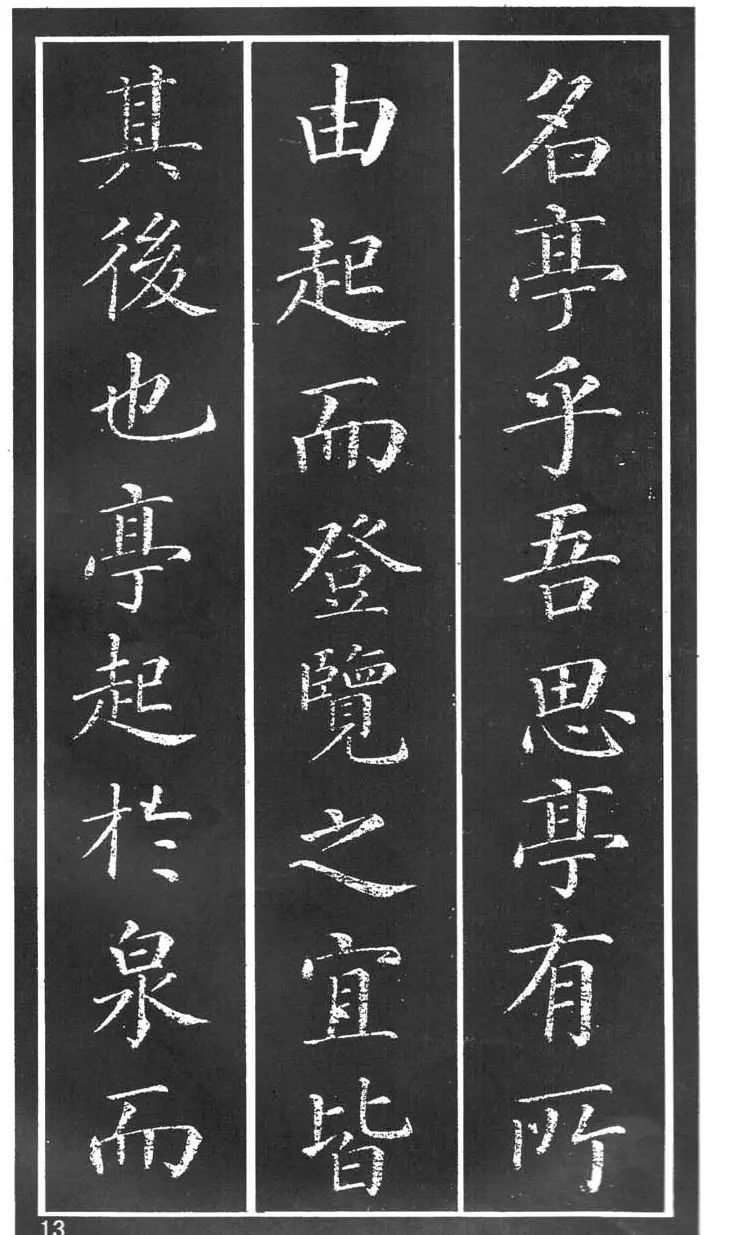 名亭乎吾思亭有所
由起而登覽之宜皆
其後也亭起於泉而
13